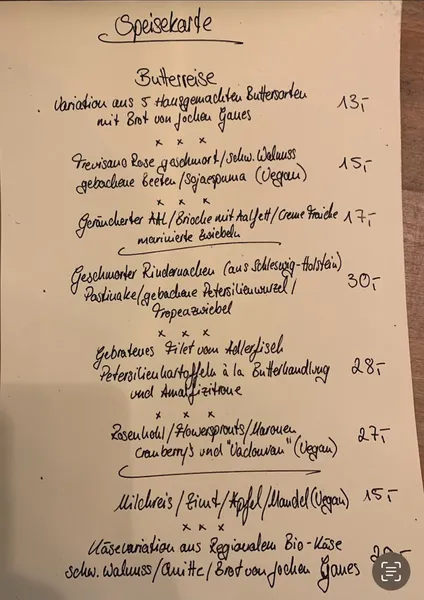 Speisekarte
Butterreise
Variation aus 5 Hausgemachten Buttersorten 13,-
mit Brot von Jochen Gaues
x x x
Trevisano Rose geschmort/schw. Walnuss 15,-
gebackene Beeten/Sojaespuma (Vegan)
x x x
Geräucherter Aal/Brioche mit Aalfett/Creme Fraiche 17,-
marinierte Zwiebeln
Geschmorter Rindernacken (aus Schleswig-Holstein)
Pastinake/gebackene Petersilienwurzel/ 30,-
Tropeazwiebel
x x x
Gebratenes Filet vom Adlerfisch
Petersilienkartoffeln à la Butterhandlung 28,-
und Amalfizitrone
x x x
Rosenkohl/Flowersprouts/Maronen 27,-
Cranberry's und "Vadouvan" (Vegan)
Milchreis/Zimt/Apfel/Mandel (Vegan) 15,-
x x x
Käsevariation aus Regionalem Bio-Käse
schw. Walnuss/Quitte/Brot von Jochen Gaues